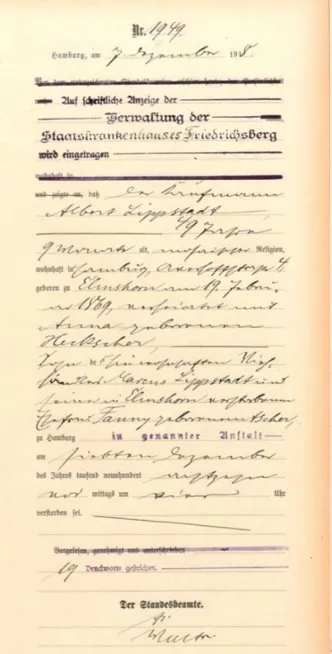 Nr. 1949.
Hamburg, am 7 Dezember 1918.
Auf schriftliche Anzeige der
Verwaltung der
Staatskrankenhauses Friedrichsberg
wird eingetragen
und zeigte an, daß der Kaufmann
Albert Lippstadt,
49 Jahre
9 Monate alt, mosaischer Religion,
wohnhaft in Hamburg, 4,
geboren zu Elmshorn am 19. Febru-
ar 1869, verheiratet mit
Anna geborenen
Heckscher,
Sohn des
Marcus Lippstadt und
seiner in Elmshorn verstorbenen
Ehefrau Fanny geborenen
zu Hamburg in genannter Anstalt
am siebten Dezember
des Jahres tausend neunhundert achtzehn
vor mittags um vier Uhr
verstorben sei.
Vorgelesen, genehmigt und unterschrieben
19 Druckworte gestrichen.
Der Standesbeamte.